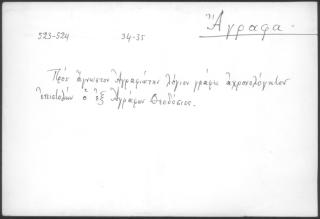 Ἄγραφα.
523-524 34-35
Πρὸς ἄγνωστον Ἀγραφιώτην λόγιον γράφει ἀχρονολόγητον
ἐπιστολὴν ὁ ἐξ Ἀγράφων Θεοδόσιος.